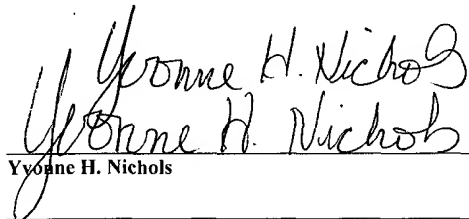 Yvonne H. Nichols
Yvonne H. Nichols
Yvonne H. Nichols